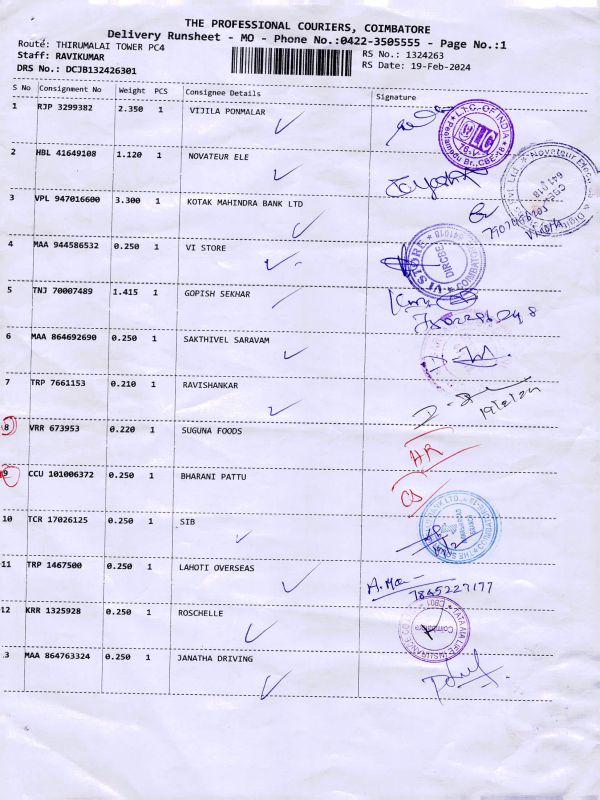 THE PROFESSIONAL COURIERS, COIMBATORE
Delivery Runsheet - MO - Phone No.:0422-3505555 - Page No.:1
Route: THIRUMALAI TOWER PC4
Staff: RAVIKUMAR
DRS No.: DCJB132426301
RS No.: 1324263
RS Date: 19-Feb-2024
S No Consignment No Weight PCS Consignee Details Signature
1 RJP 3299382 2.350 1 VIJILA PONMALAR
L.I.C. OF INDIA
LIC
2 HBL 41649108 1.120 1 NOVATEUR ELE
3 VPL 947016600 3.300 1 KOTAK MAHINDRA BANK LTD
4 MAA 944586532 0.250 1 VI STORE
VI STORE
5 TNJ 70007489 1.415 1 GOPISH SEKHAR
6 MAA 864692690 0.250 1 SAKTHIVEL SARAVAM
7 TRP 7661153 0.210 1 RAVISHANKAR
19/2/24
8 VRR 673953 0.220 1 SUGUNA FOODS
AR
9 CCU 101006372 0.250 1 BHARANI PATTU
CS
10 TCR 17026125 0.250 1 SIB
11 TRP 1467500 0.250 1 LAHOTI OVERSEAS
7845227177
12 KRR 1325928 0.250 1 ROSCHELLE
TATA AIA LIFE INSURANCE CO
Coimbatore
.3 MAA 864763324 0.250 1 JANATHA DRIVING